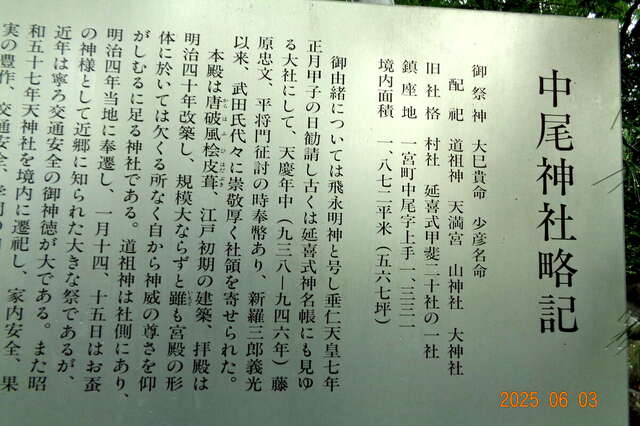 中尾神社略記
御祭神　大巳貴命　少彦名命
配祀　道祖神　天満宮　山神社　大神社
旧社格　村社　延喜式甲斐二十社の一社
鎮座地　一宮町中尾字上手一、三三一
境内面積　一、八七二平米（五六七坪）
御由緒については飛永明神と号し垂仁天皇七年
正月甲子の日勧請し古くは延喜式神名帳にも見ゆ
る大社にして、天慶年中（九三八ー九四六年）藤
原忠文、平将門征討の時奉幣あり、新羅三郎義光
以来、武田氏代々に崇敬厚く社領を寄せられた。
本殿は唐破風桧皮葺、江戸初期の建築、拝殿は
からはふ　ひはだぶき
明治四十年改築し、規模大ならずと雖も宮殿の形
いえど
体に於いては欠くる所なく自から神威の尊さを仰
がしむるに足る神社である。道祖神は社側にあり、
明治四年当地に奉遷し、一月十四、十五日はお蚕
の神様として近郷に知られた大きな祭であるが、
近年は寧ろ交通安全の御神徳が大である。また昭
和五十七年天神社を境内に遷祀し、家内安全、果
実の豊作、交通安全、学問の
2025 06 03